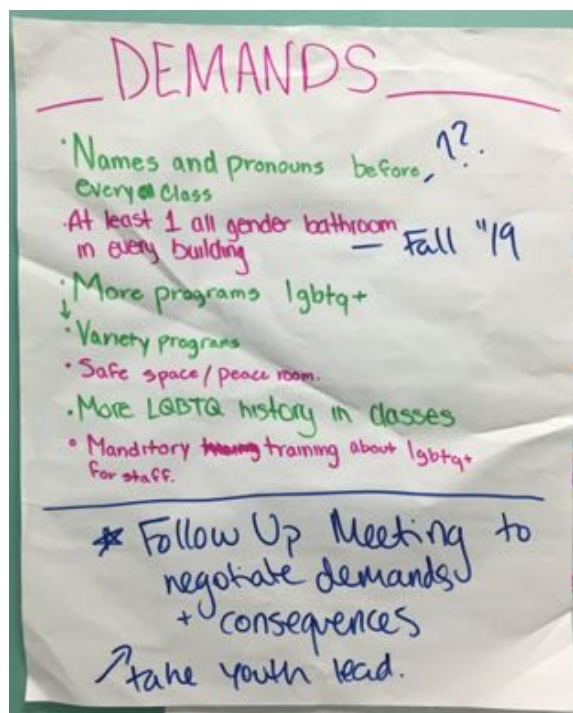 DEMANDS
• Names and pronouns before, 1?.
every class
• At least 1 all gender bathroom
in every building — Fall "19
• More programs lgbtq+
↓
• Variety programs
• Safe space/peace room.
• More LGBTQ history in classes
• Manditory training about lgbtq+
for staff.
* Follow Up Meeting to
negotiate demands
+ consequences
↗ take youth lead.